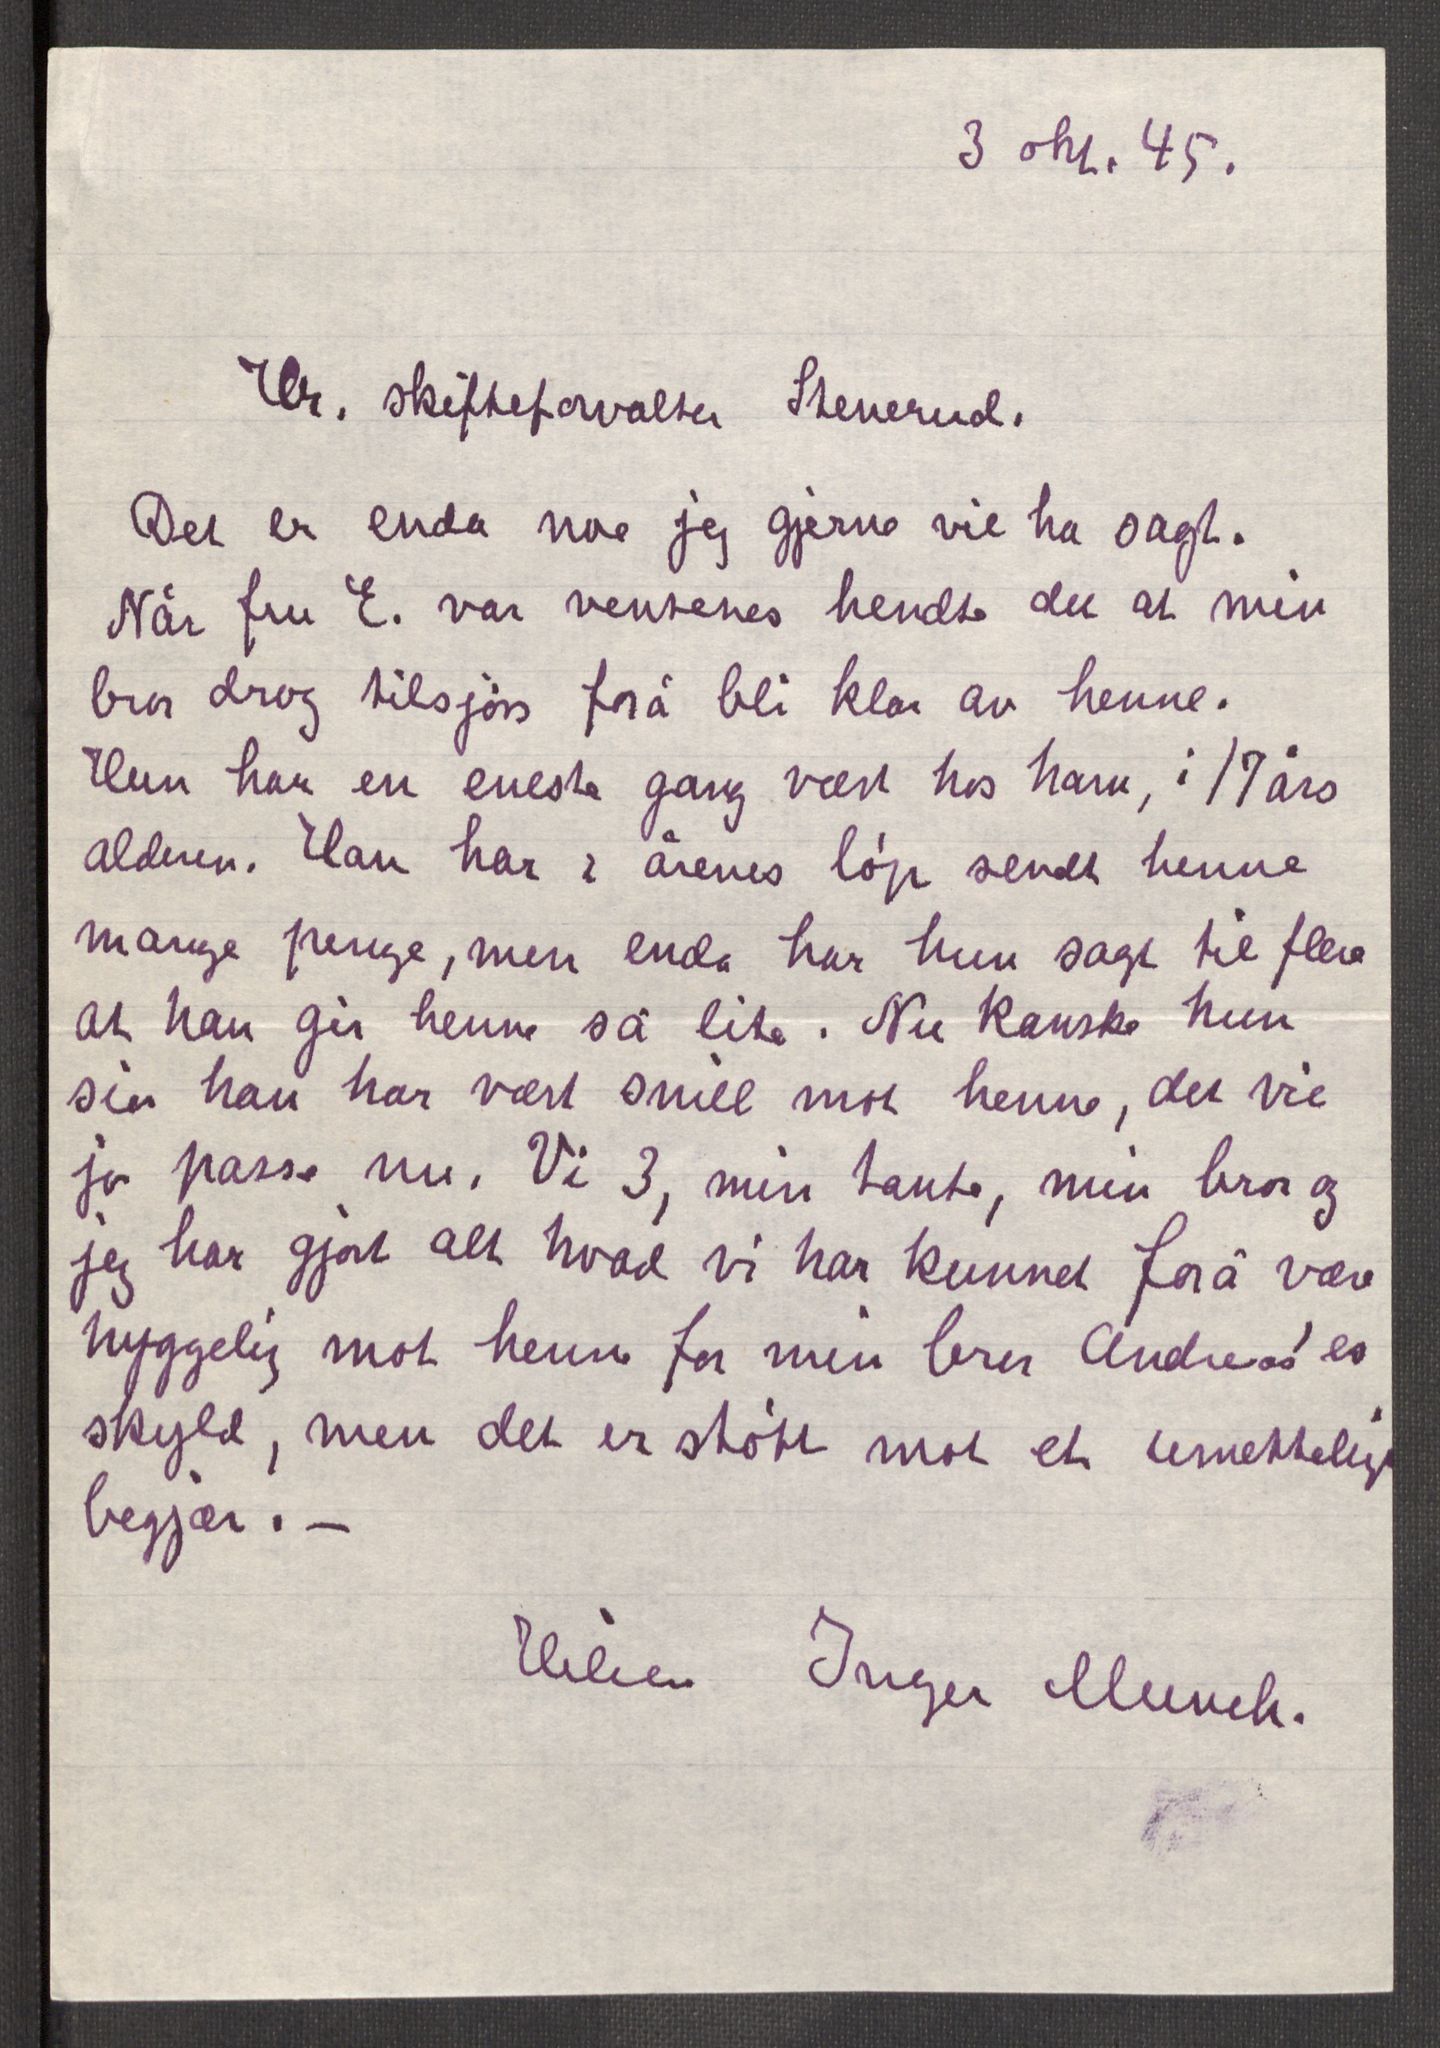 3 okt. 45.
Hr. skifteforvalter Stenerud.
Det er enda noe jeg gjerne vil ha sagt.
Når fru E. var ventenes hendte det at min
bror drog tilsjøss forå bli klar av henne.
Hun har en eneste gang vært hos ham, i 17 års
alderen. Han har i årenes løp sendt henne
mange penge, men enda har hun sagt til flere
at han gir henne så lite. Nu kanske hun
sier han har vært snill mot henne, det vil
jo passe nu. Vi 3, min tante, min bror og
jeg har gjort alt hvad vi har kunnet forå være
hyggelig mot henne for min bror Andreas'es
skyld, men det er støtt mot et umettelig
begjær. —
Hilsen Inger Munch.